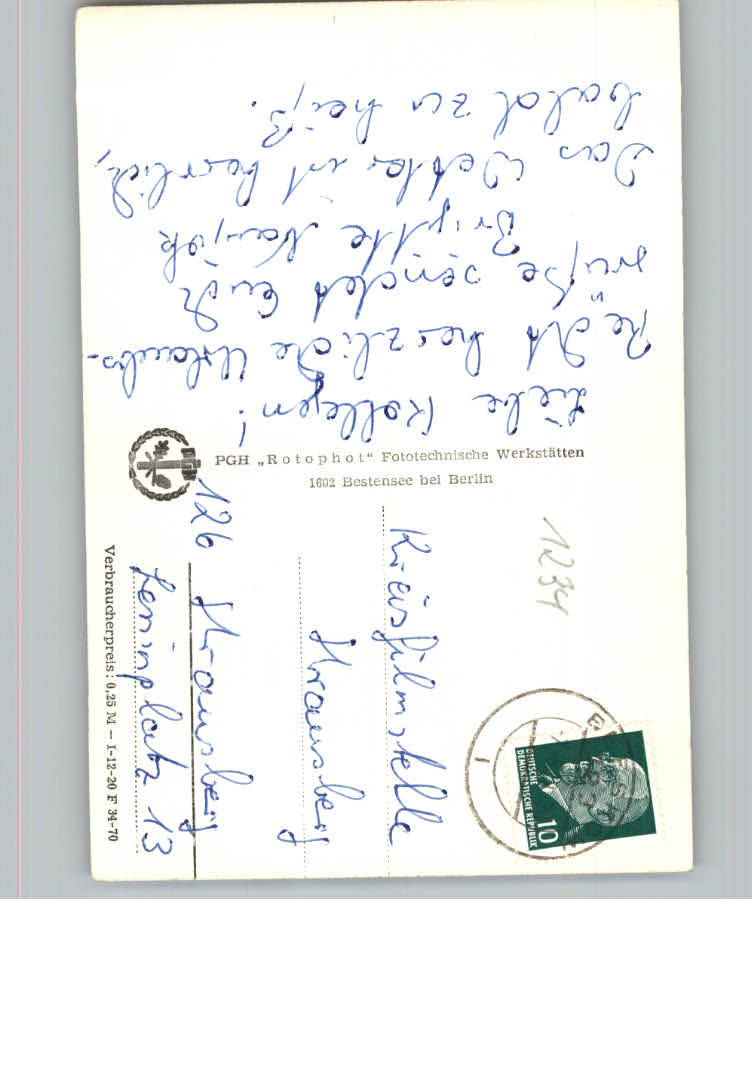 Liebe Kollegen!
Recht herzliche Urlaubs-
grüße sendet Euch
Brigitte
Das Wetter ist herrlich,
bald zu heiß.
PGH „Rotophot“ Fototechnische Werkstätten
1602 Bestensee bei Berlin
1234
Kreisfilmstelle
Strausberg
126 Strausberg
Leninplatz 13
Verbraucherpreis: 0,25 M — I-12-20 F 34-70
DEUTSCHE
DEMOKRATISCHE REPUBLIK
10